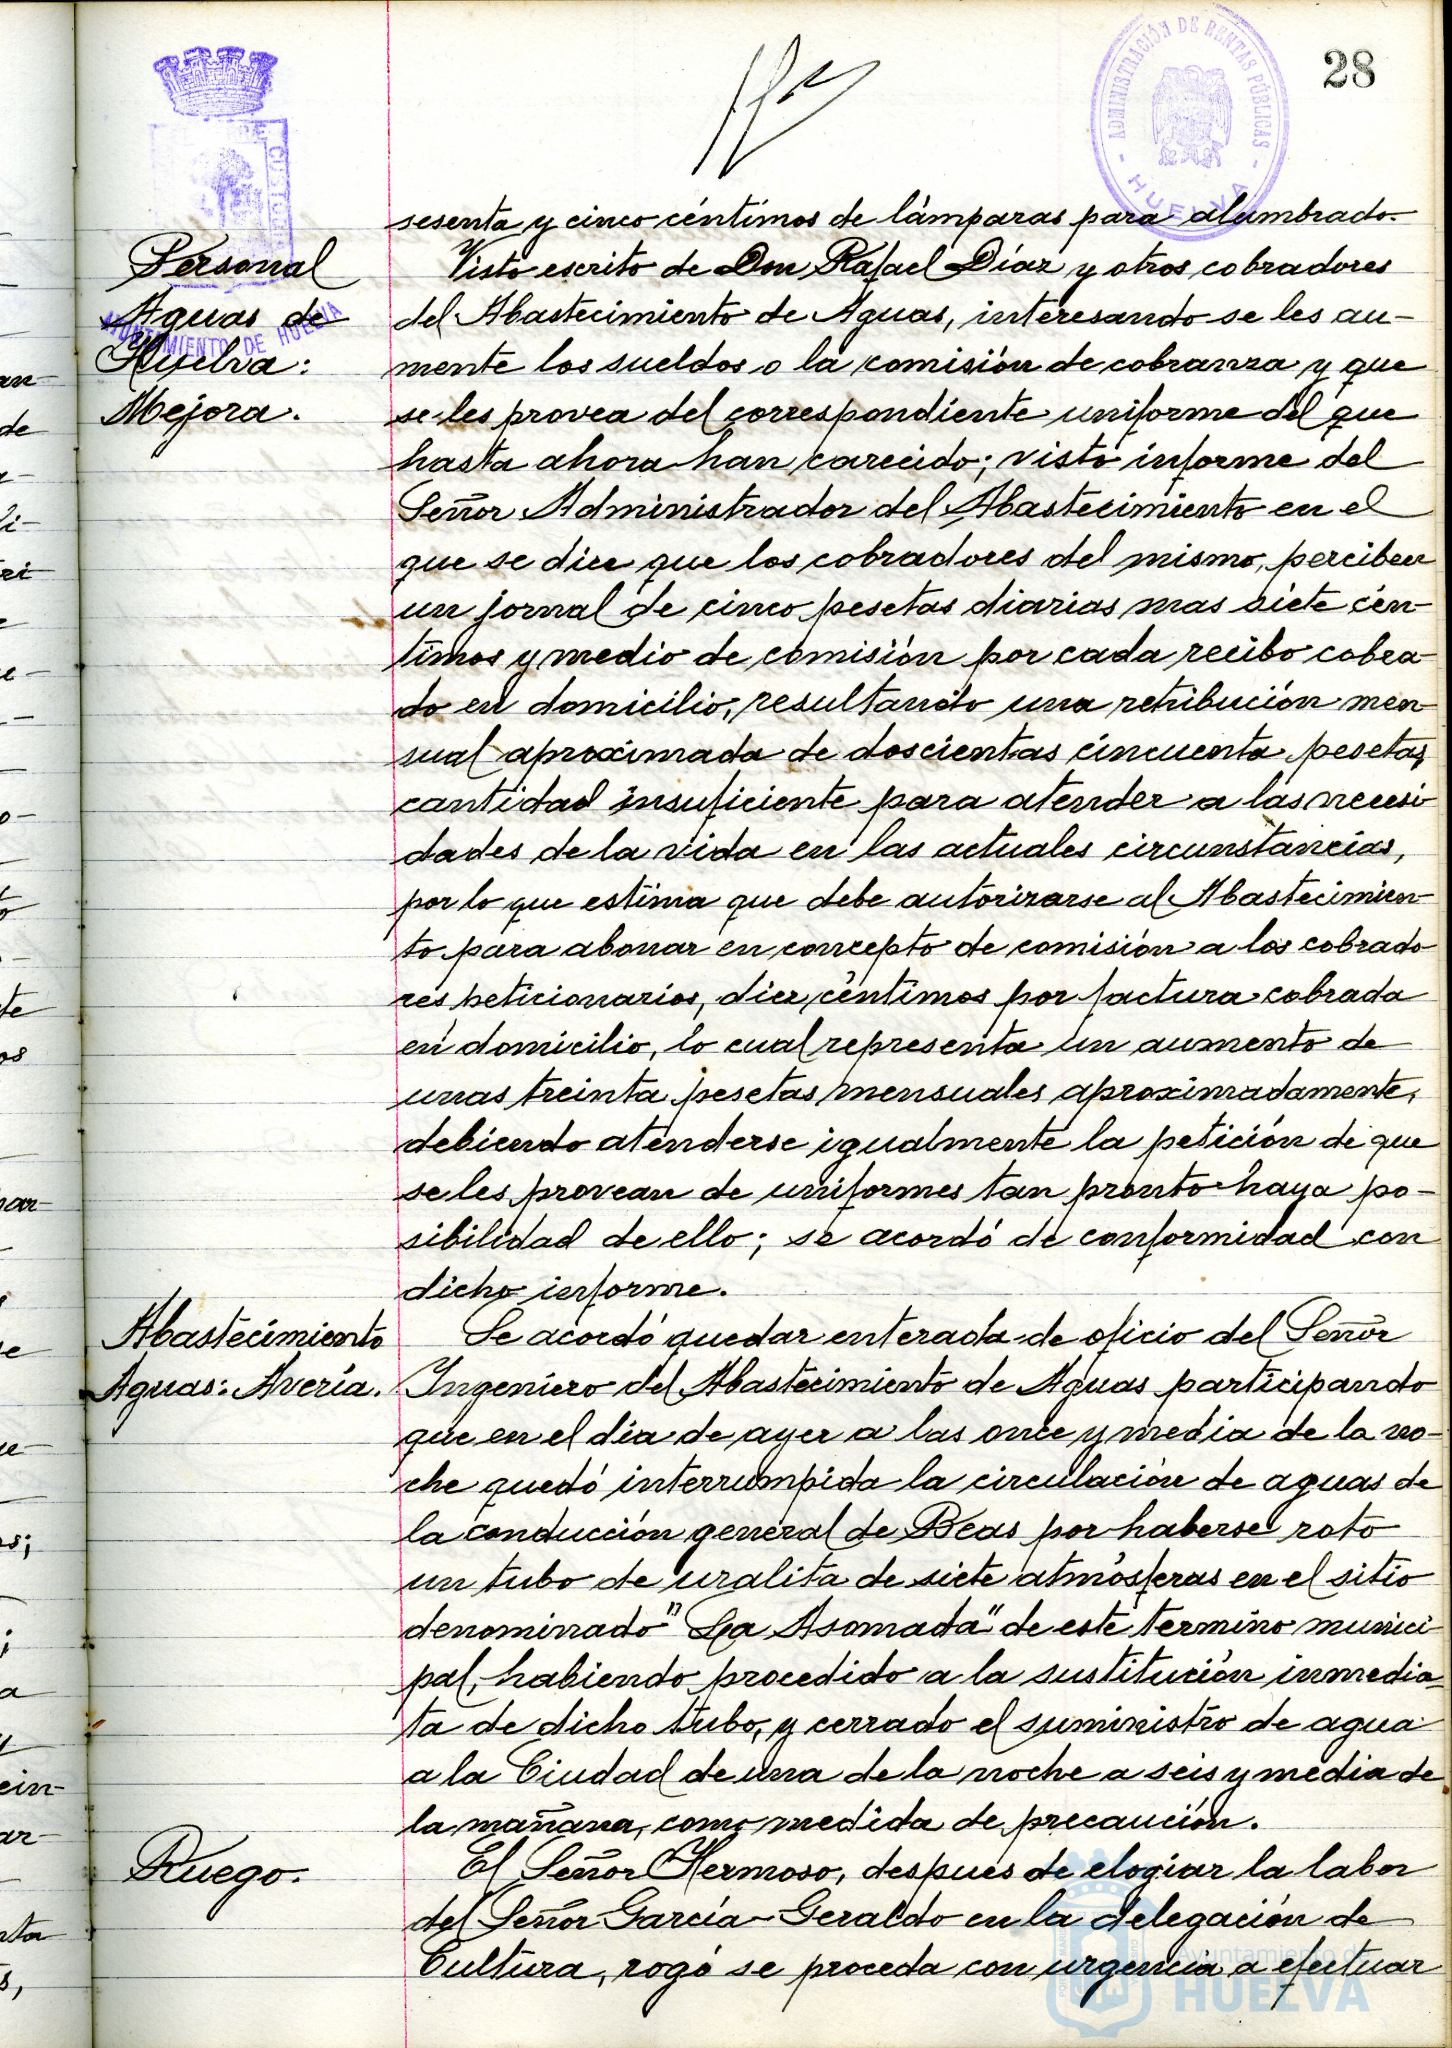 28
ADMINISTRACIÓN DE RENTAS PÚBLICAS
- HUELVA -
AYUNTAMIENTO DE HUELVA
sesenta y cinco céntimos de lámparas para alumbrado.
Personal
Aguas de
Huelva:
Mejora.
Visto escrito de Don Rafael Díaz y otros cobradores
del Abastecimiento de Aguas, interesando se les au-
mente los sueldos o la comisión de cobranza y que
se les provea del correspondiente uniforme del que
hasta ahora han carecido; visto informe del
Señor Administrador del Abastecimiento en el
que se dice que los cobradores del mismo, perciben
un jornal de cinco pesetas diarias mas siete cén-
timos y medio de comisión por cada recibo cobra-
do en domicilio, resultando una retribución men-
sual aproximada de doscientas cincuenta pesetas,
cantidad insuficiente para atender a las necesi-
dades de la vida en las actuales circunstancias,
por lo que estima que debe autorizarse al Abastecimien-
to para abonar en concepto de comisión a los cobrado
res peticionarios, diez céntimos por factura cobrada
en domicilio, lo cual representa un aumento de
unas treinta pesetas mensuales aproximadamente,
debiendo atenderse igualmente la petición de que
se les provean de uniformes tan pronto haya po-
sibilidad de ello; se acordó de conformidad con
dicho informe.
Abastecimiento
Aguas: Avería.
Se acordó quedar enterada de oficio del Señor
Ingeniero del Abastecimiento de Aguas participando
que en el día de ayer a las once y media de la no-
che quedó interrumpida la circulación de aguas de
la conducción general de Beas por haberse roto
un tubo de uralita de siete atmósferas en el sitio
denominado "La Asomada" de este termino munici-
pal, habiendo procedido a la sustitución inmedia-
ta de dicho tubo, y cerrado el suministro de agua
a la Ciudad de una de la noche a seis y media de
la mañana, como medida de precaución.
Ruego.
El Señor Hermoso, después de elogiar la labor
del Señor García-Geraldo en la delegación de
Cultura, rogó se proceda con urgencia a efectuar
Ayuntamiento de
HUELVA